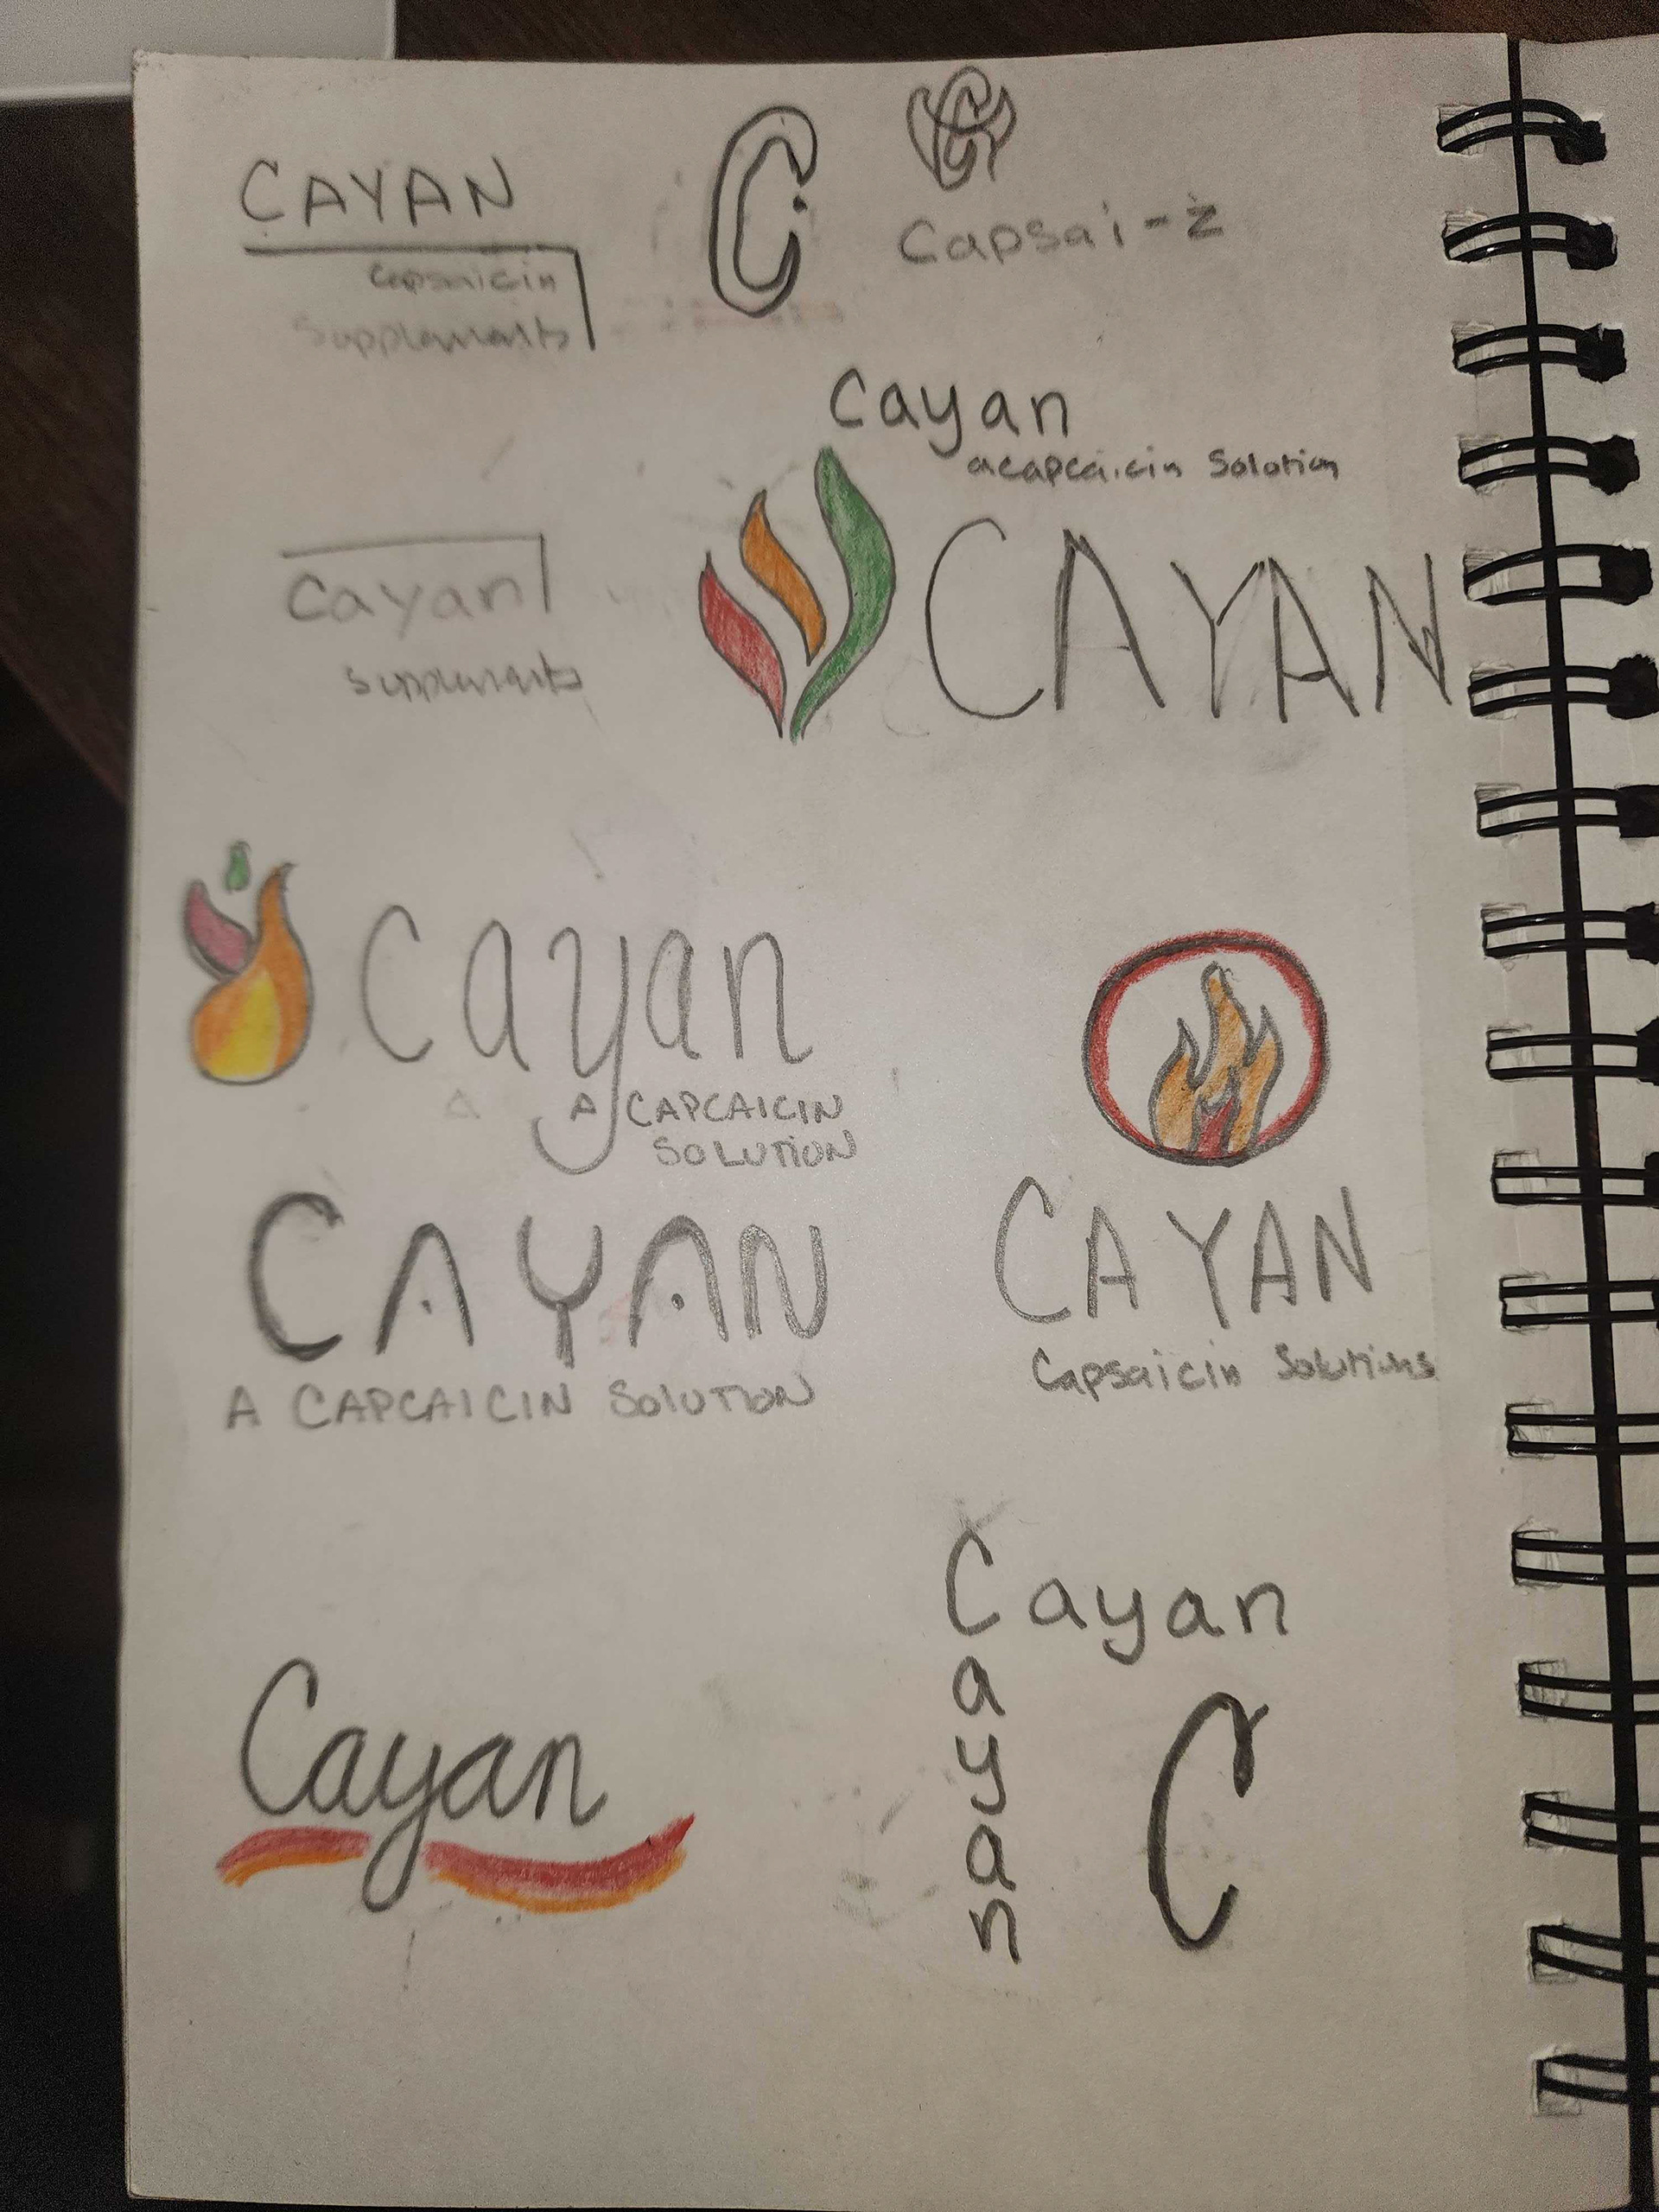 CAYAN
capsaicin
supplements
C
Capsai-z
Cayan
a capcaicin Solution
CAYAN
Cayan
supplements
Cayan
A CAPCAICIN
SOLUTION
CAYAN
A CAPCAICIN SOLUTION
CAYAN
Capsaicin Solutions
Cayan
Cayan
a
y
a
n
C